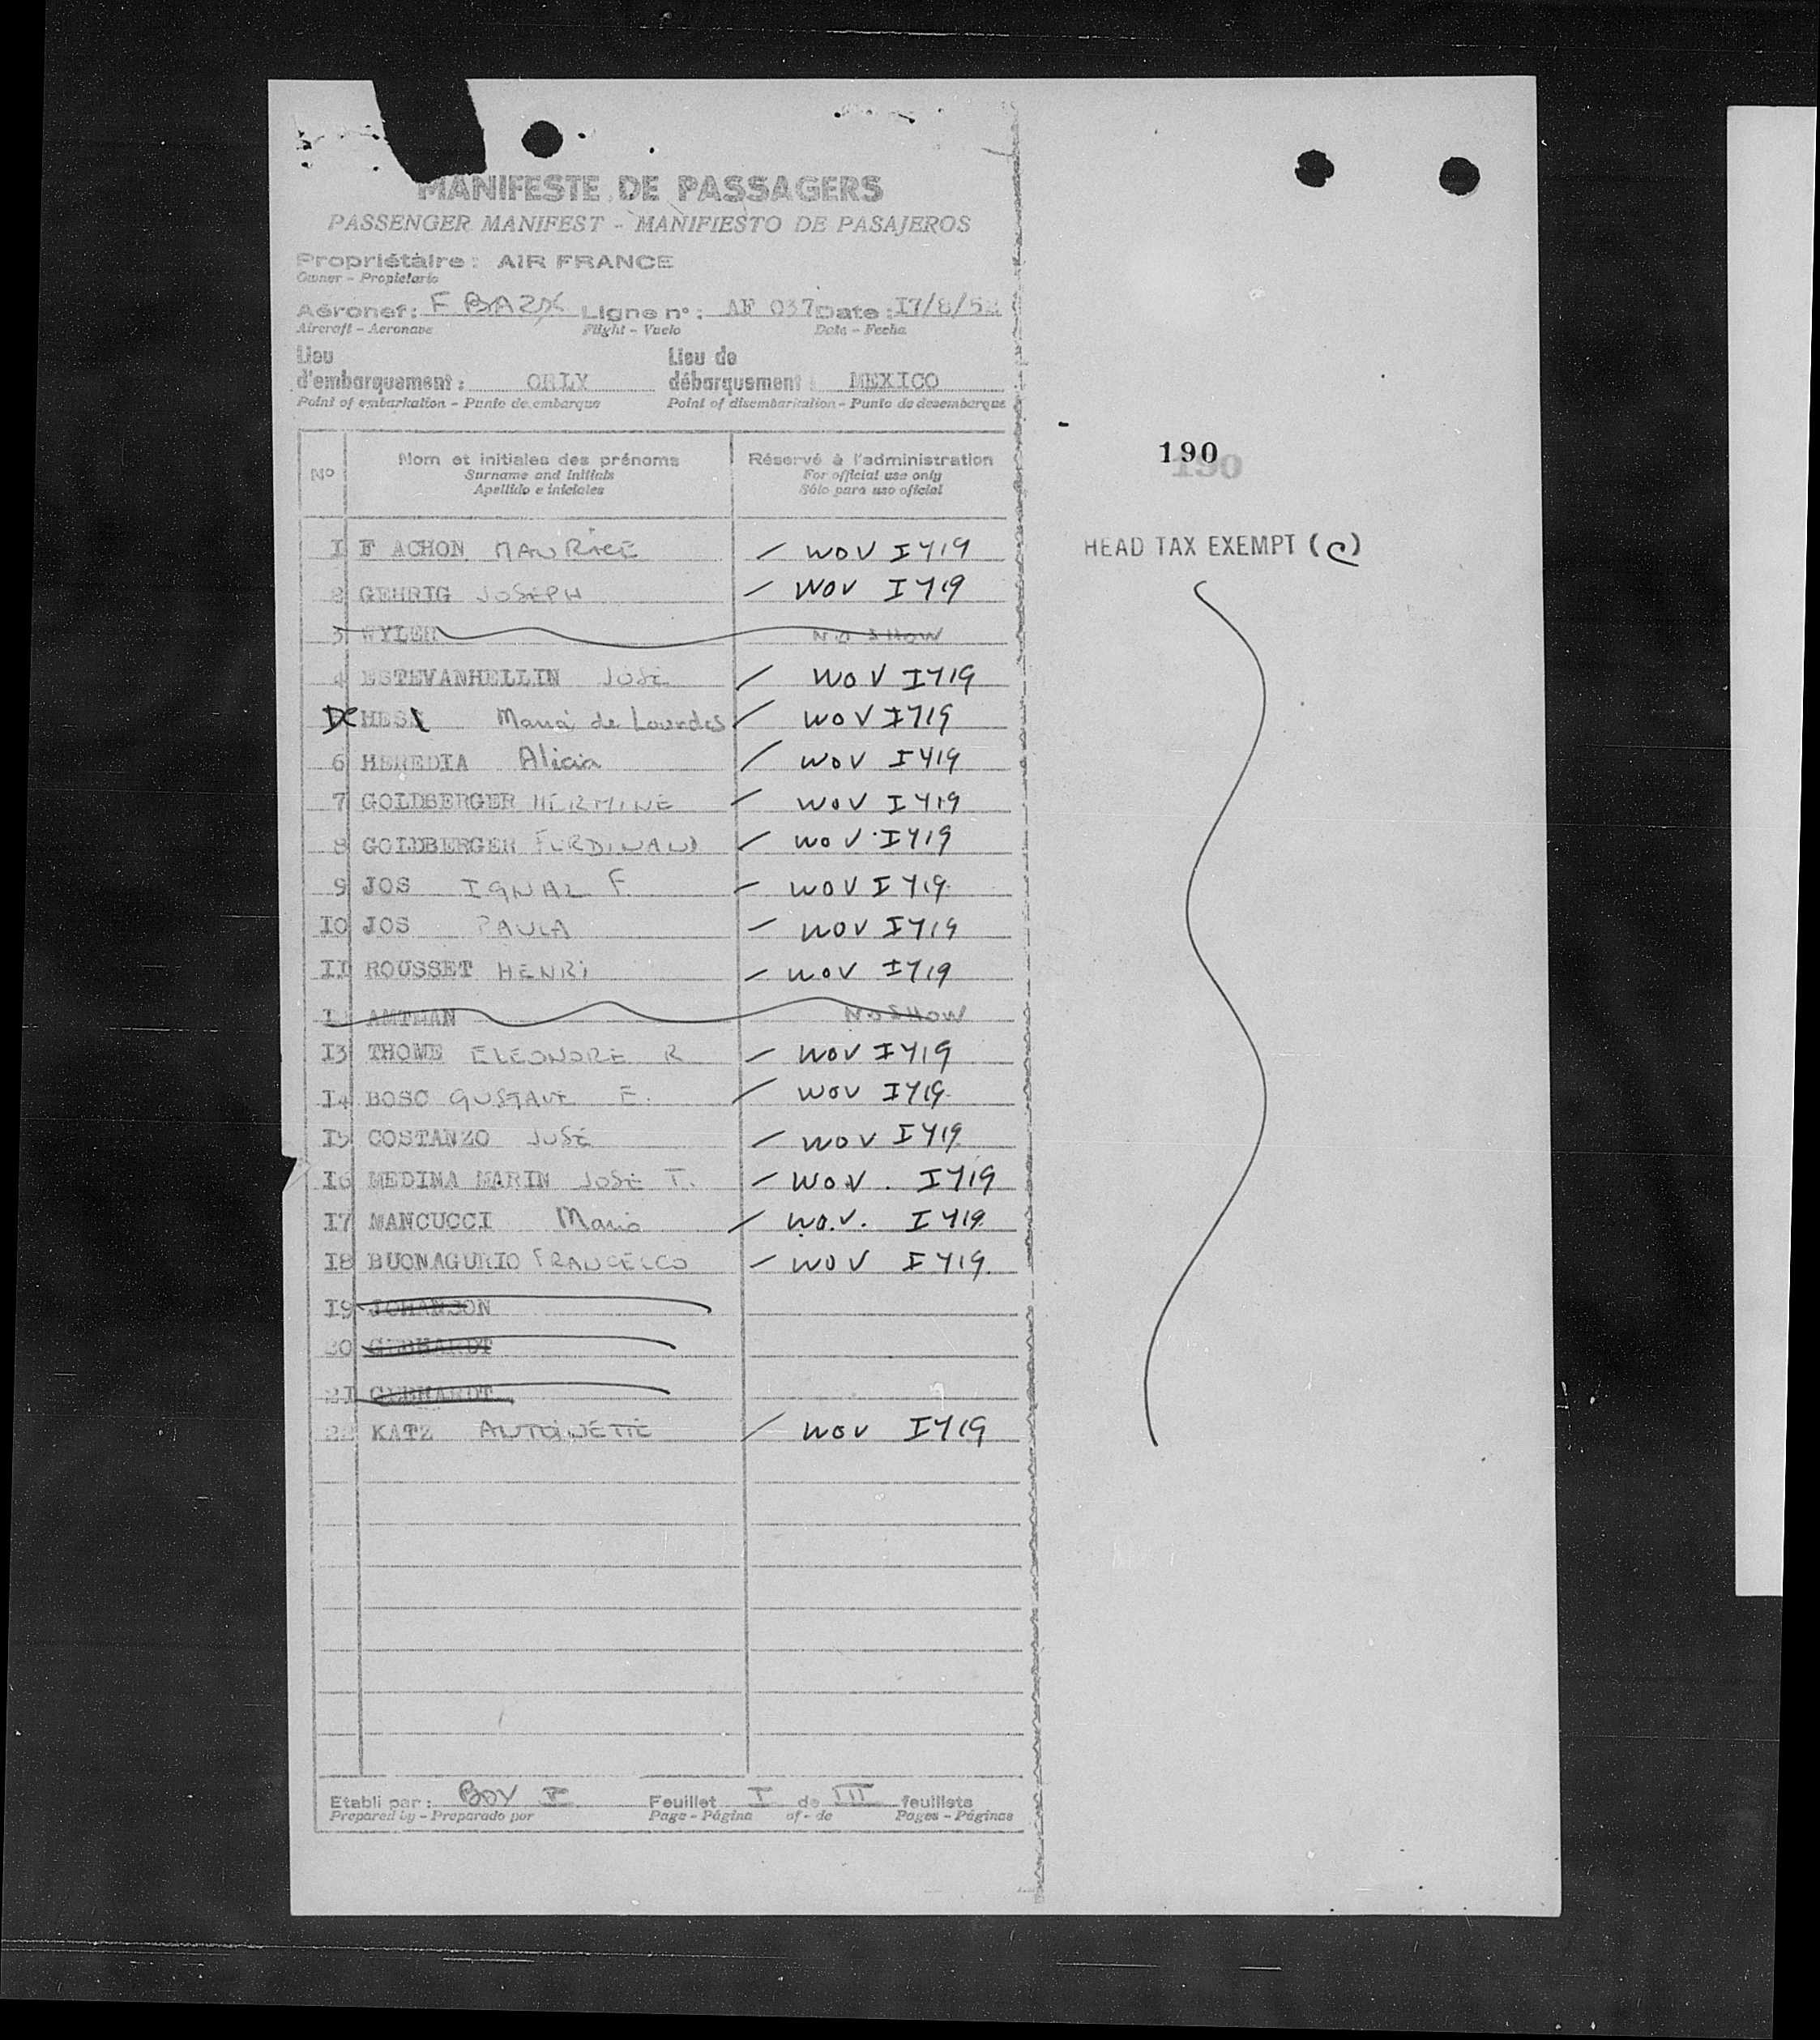 MANIFESTE DE PASSAGERS
PASSENGER MANIFEST - MANIFIESTO DE PASAJEROS
Propriétaire : AIR FRANCE
Owner - Propietario
Aéronef : F Ligne n° : AF 037 Date : I7/8/52
Aircraft - Aeronave Flight - Vuelo Date - Fecha
Lieu d'embarquement : ORLY Lieu de débarquement : MEXICO
Point of embarkation - Punto de embarque Point of disembarkation - Punto de desembarque
190
N° Nom et initiales des prénoms Réservé à l'administration
Surname and initials For official use only
Apellido e iniciales Sólo para uso oficial
HEAD TAX EXEMPT (C)
I F ACHON MAURICE / WOV I 719
2 GEHRIG JOSEPH / WOV I 719
3 WYLER NO SHOW
4 ESTEVANHELLIN JOSE / WOV I 719
Maria de Lourdes / WOV I 719
6 HEREDIA Alicia / WOV I 719
7 GOLDBERGER HERMINE / WOV I 719
8 GOLDBERGER FERDINAND / WOV I 719
9 JOS IGNAZ F. / WOV I 719
IO JOS PAULA / WOV I 719
II ROUSSET HENRI / WOV I 719
I2 AMTMAN NO SHOW
I3 THOME ELEONORE R / WOV I 719
I4 BOSC GUSTAVE E. / WOV I 719
I5 COSTANZO JOSÉ / WOV I 719
I6 MEDINA MARIN JOSE T. / WOV. I 719
I7 MANCUCCI Mario / WO.V. I 719
I8 BUONAGURIO FRANCESCO / WOV I 719
I9 JOHANSON
20 GEBHARDT
2I GEBHARDT
22 KATZ ANTOINETTE / WOV I 719
Etabli par : BOY I Feuillet I de III feuillets
Prepared by - Preparado por Page - Página of - de Pages - Páginas